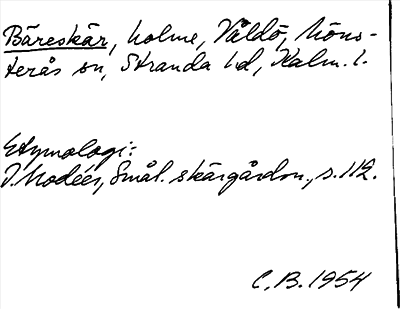 Bäreskär, holme, Våldö, Möns-
terås sn, Stranda hd, Kalm. l.
Etymologi:
I. Modéer, Smål. skärgårdsn., s. 112.
C. B. 1954